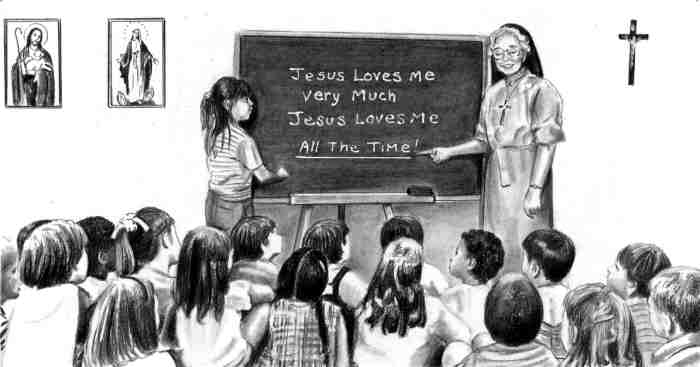 Jesus Loves me
Very Much
Jesus Loves Me
All The Time!